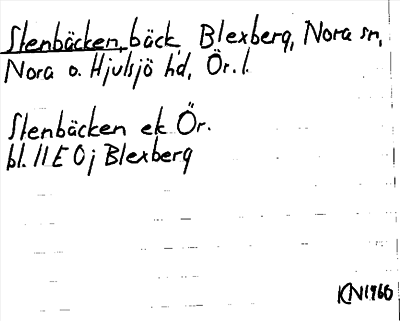 Stenbäcken, bäck, Blexberg, Nora sn,
Nora o. Hjulsjö hd, Ör. l.
Stenbäcken ek Ör.
bl. 11 E 0 j Blexberg
KN 1960